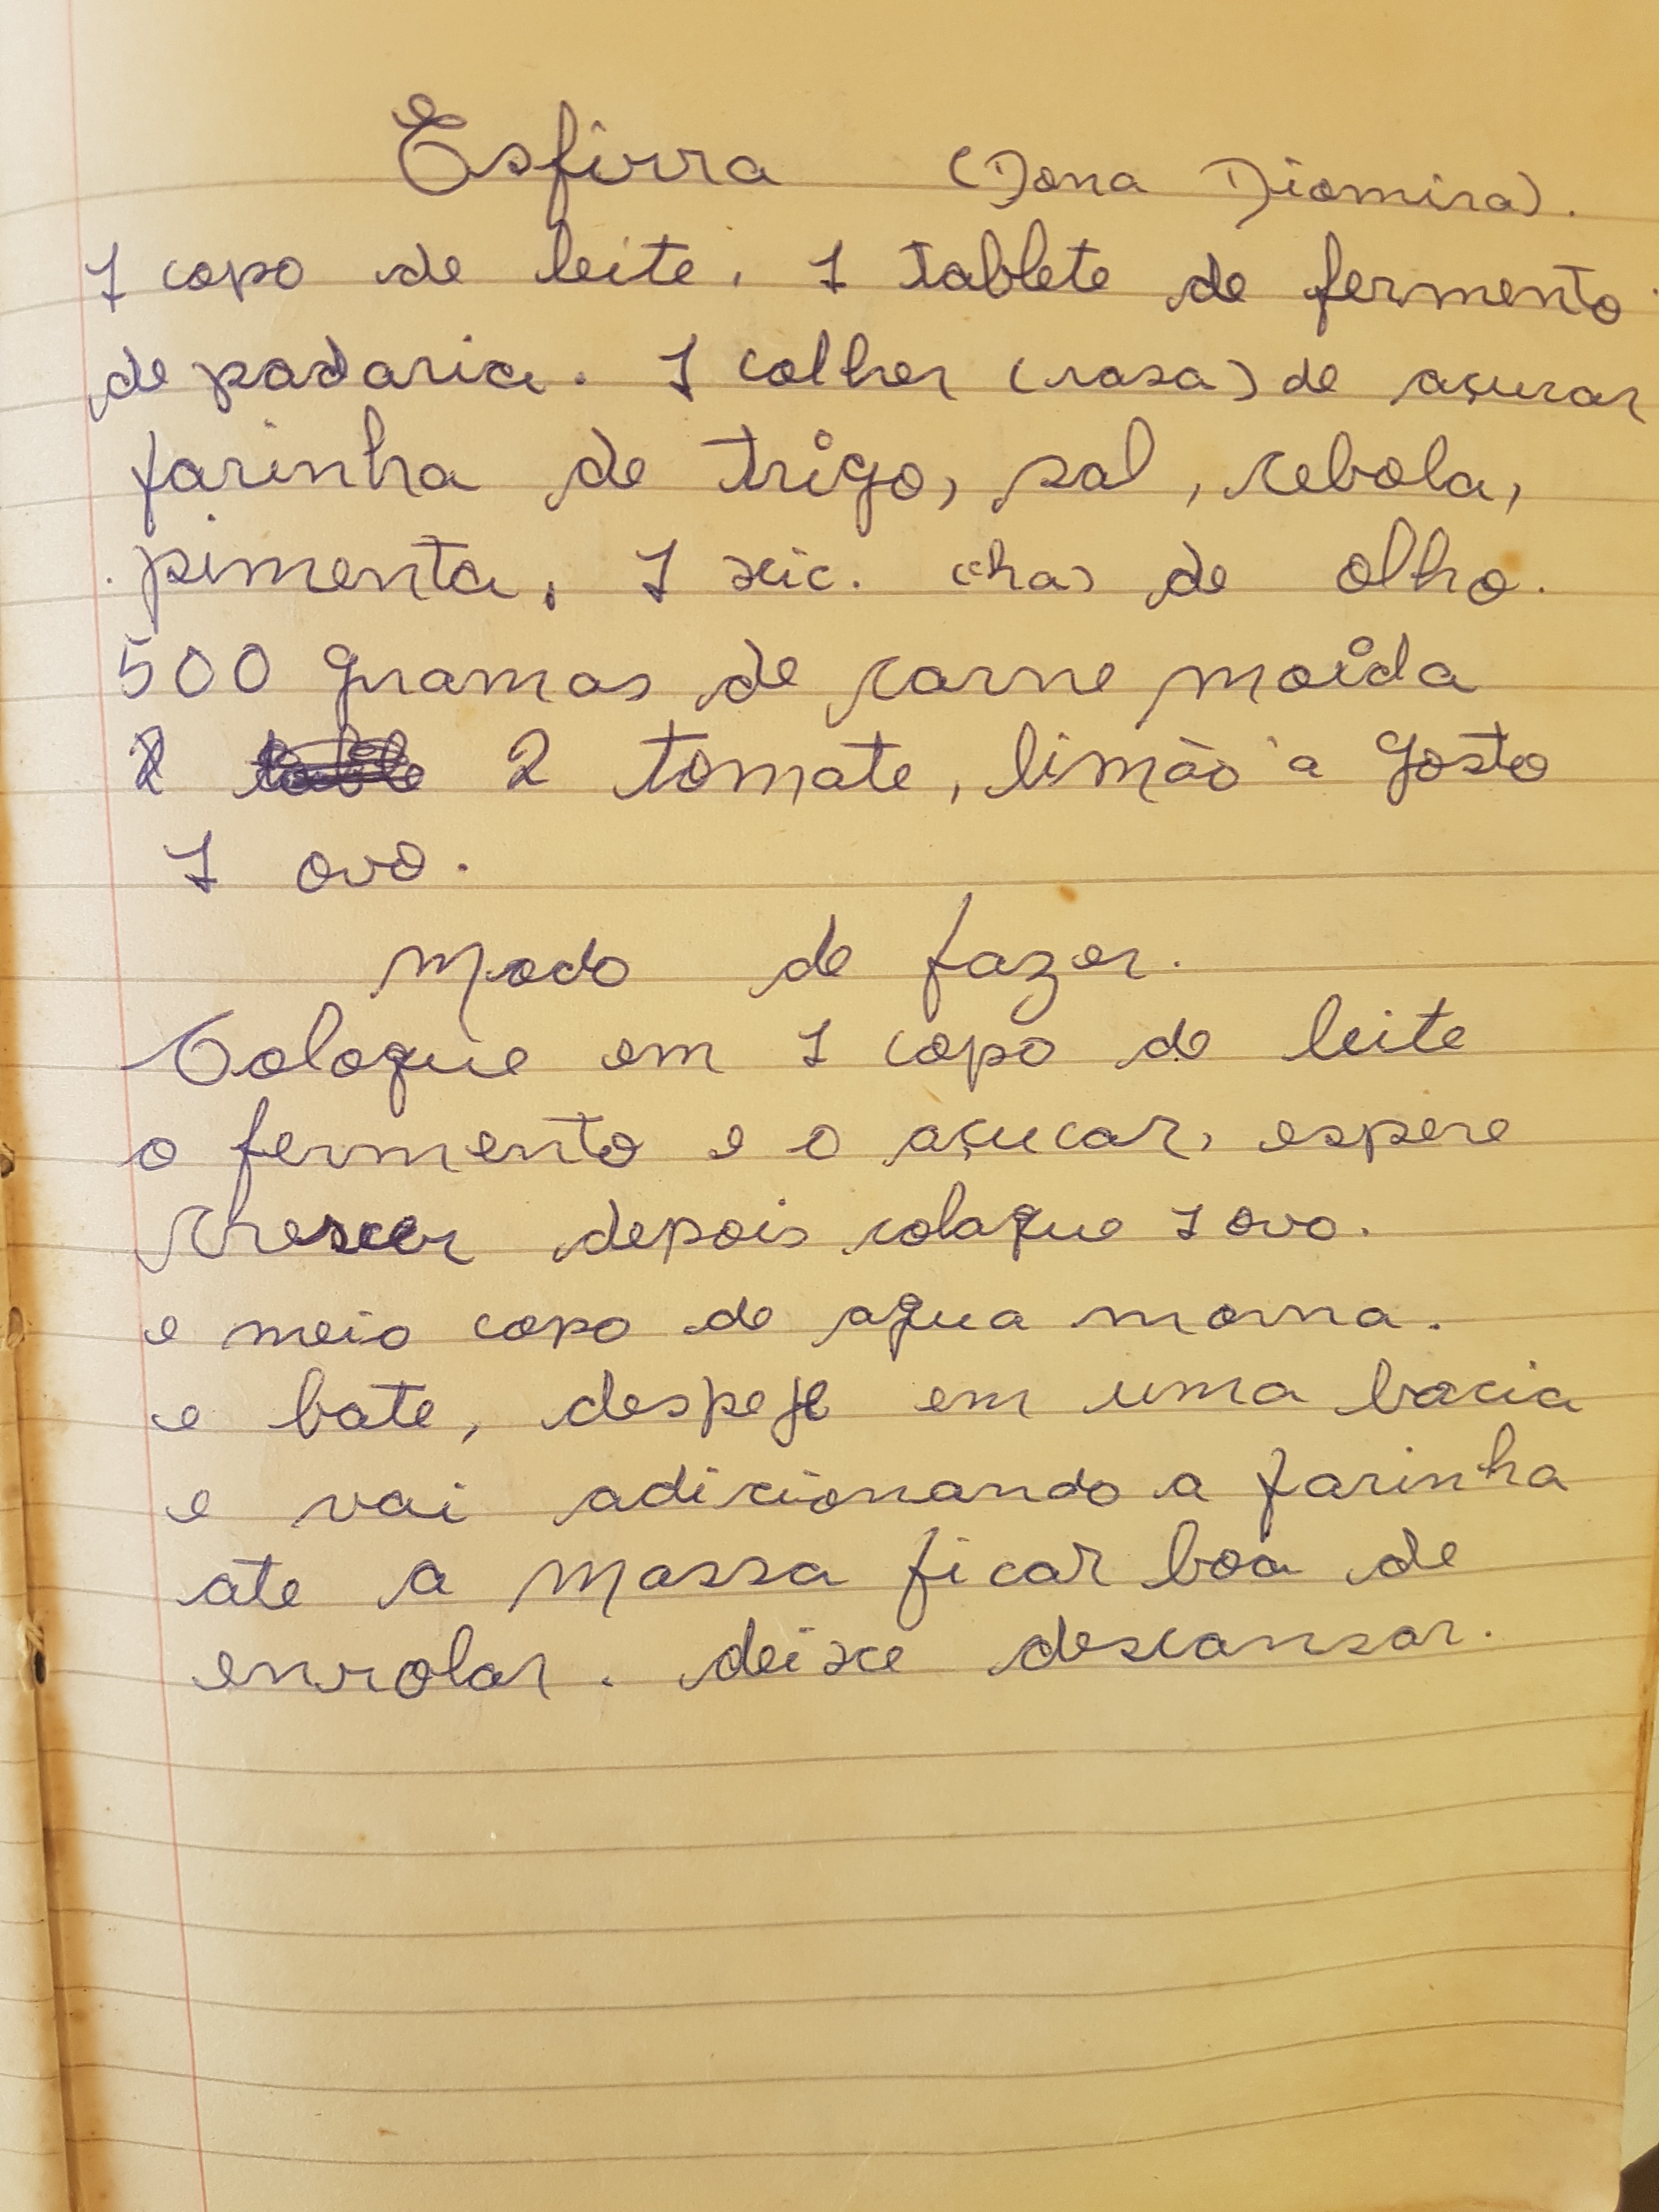 Esfirra (Dona Diomira).
1 copo de leite, 1 tablete de fermento
de padaria. 1 colher (rasa) de açucar
farinha de trigo, sal, cebola,
pimenta, 1 xic. (cha) de olho.
500 gramas de carne moida
2 2 tomate, limão à gosto
1 ovo.
Modo de fazer.
Coloque em 1 copo de leite
o fermento e o açucar, espere
chrescer depois coloque 1 ovo.
e meio copo de agua morna.
e bate, despeje em uma bacia
e vai adicionando a farinha
ate a massa ficar boa de
enrolar. deixe descansar.